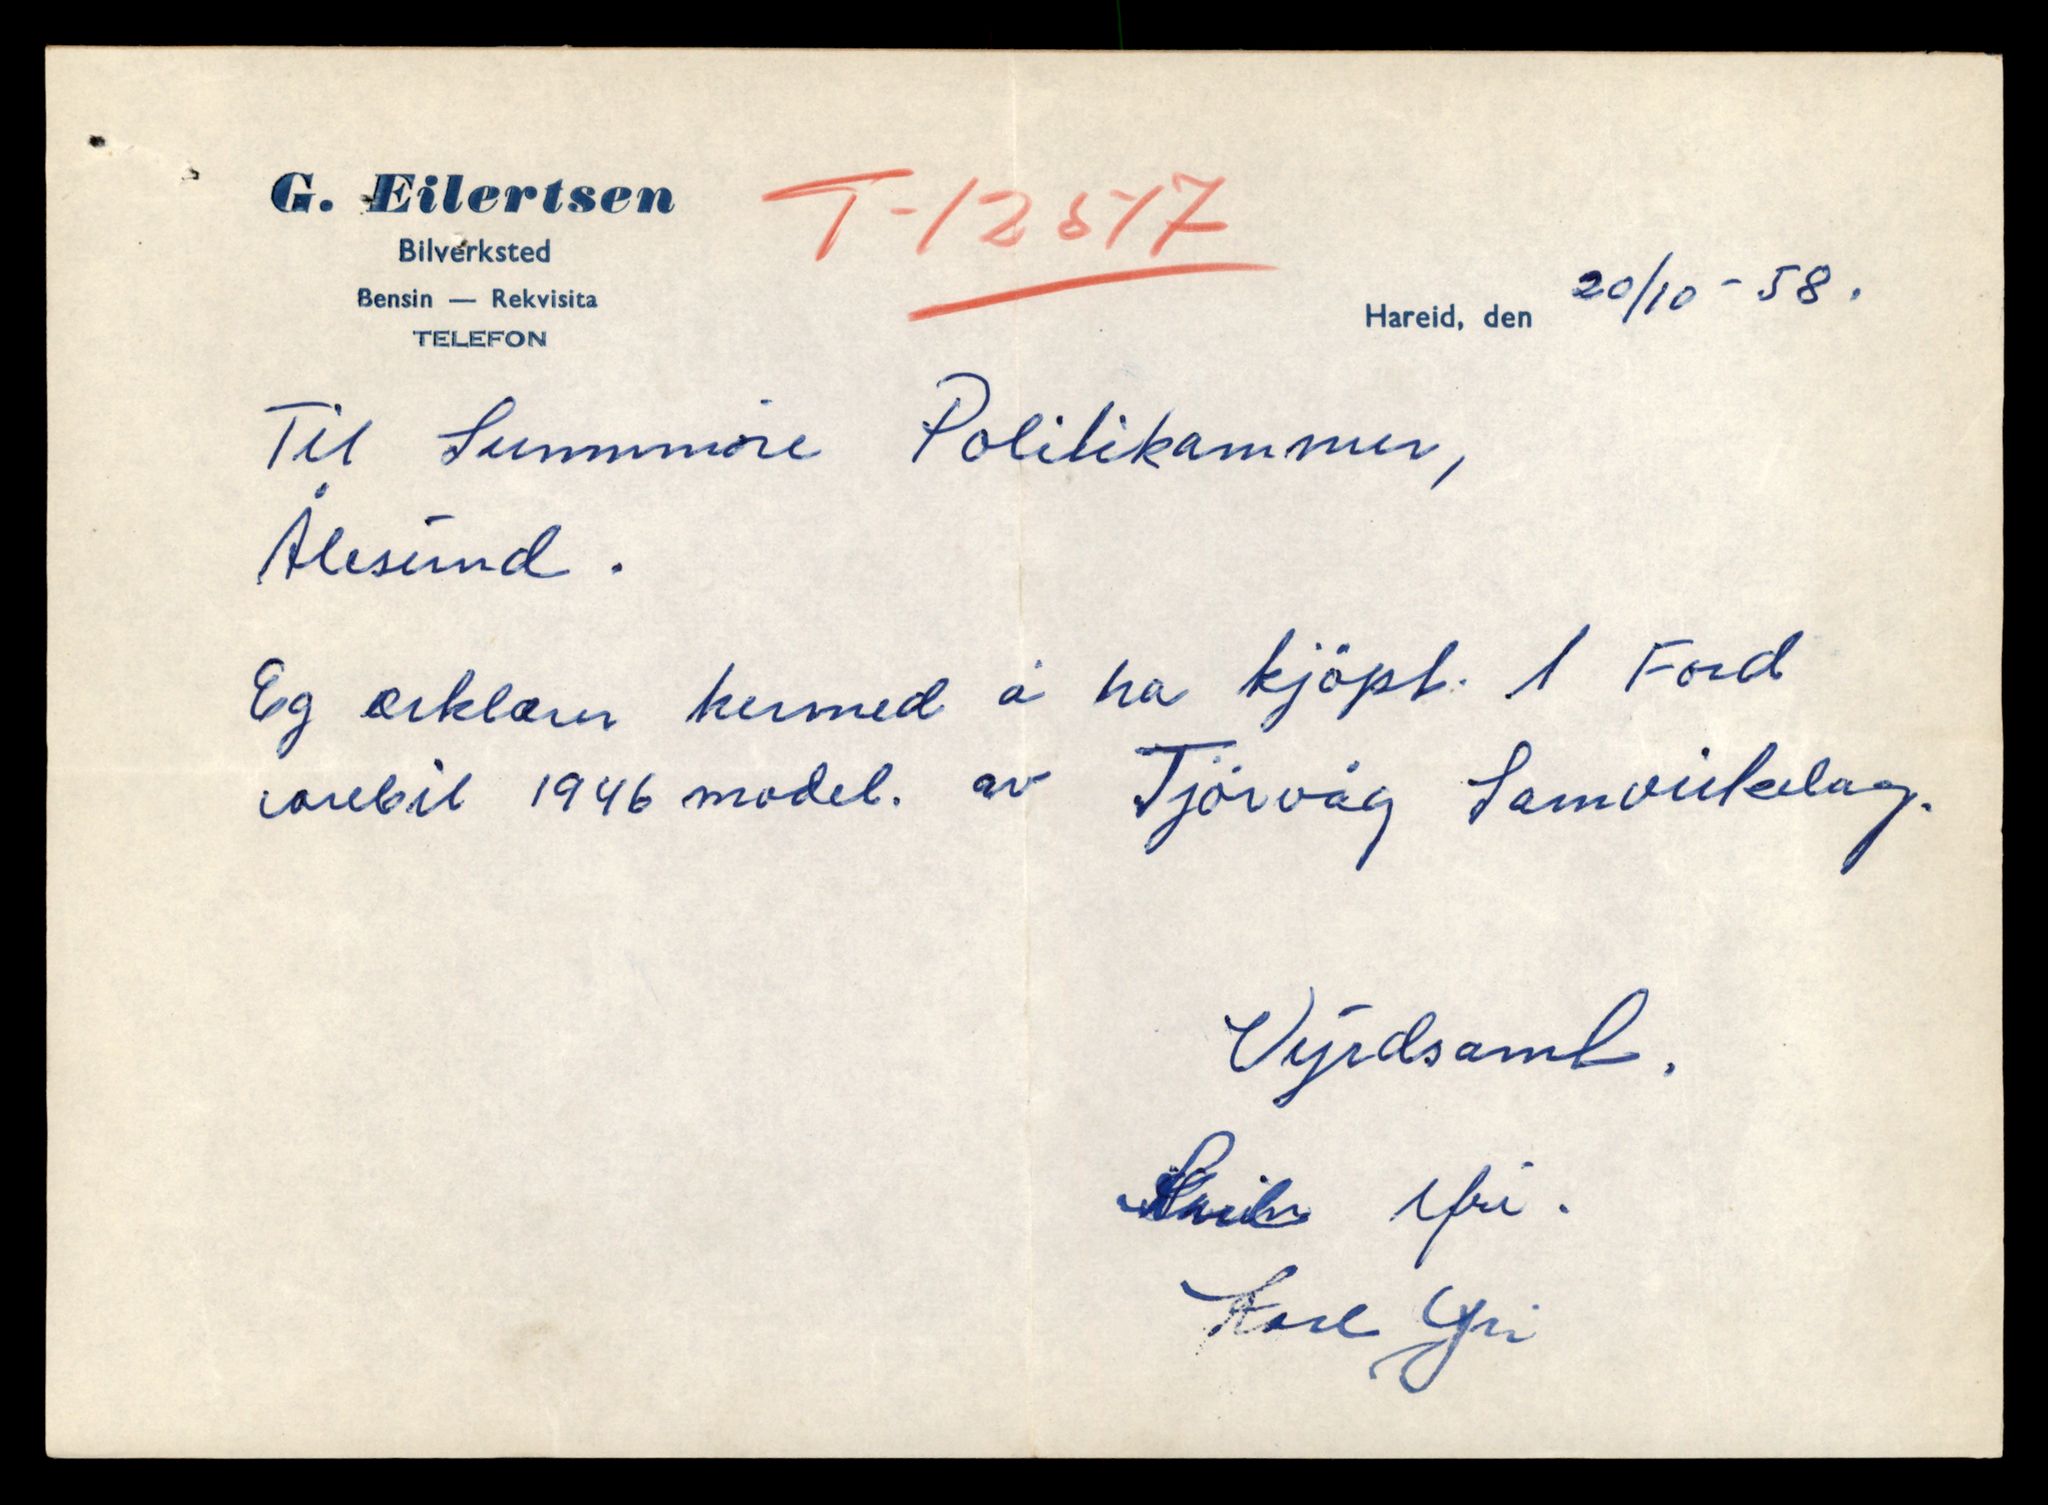 G. Eilertsen
Bilverksted
Bensin — Rekvisita
TELEFON
T-12517
Hareid, den 20/10 - 58.
Til Sunnmöre Politikammer,
Ålesund.
Eg ærklærer hermed å ha kjöpt. 1 Ford
varebil 1946 model. av Tjörvåg Samvirkelag.
Vyrdsamt.
Yri.
Karl Yri